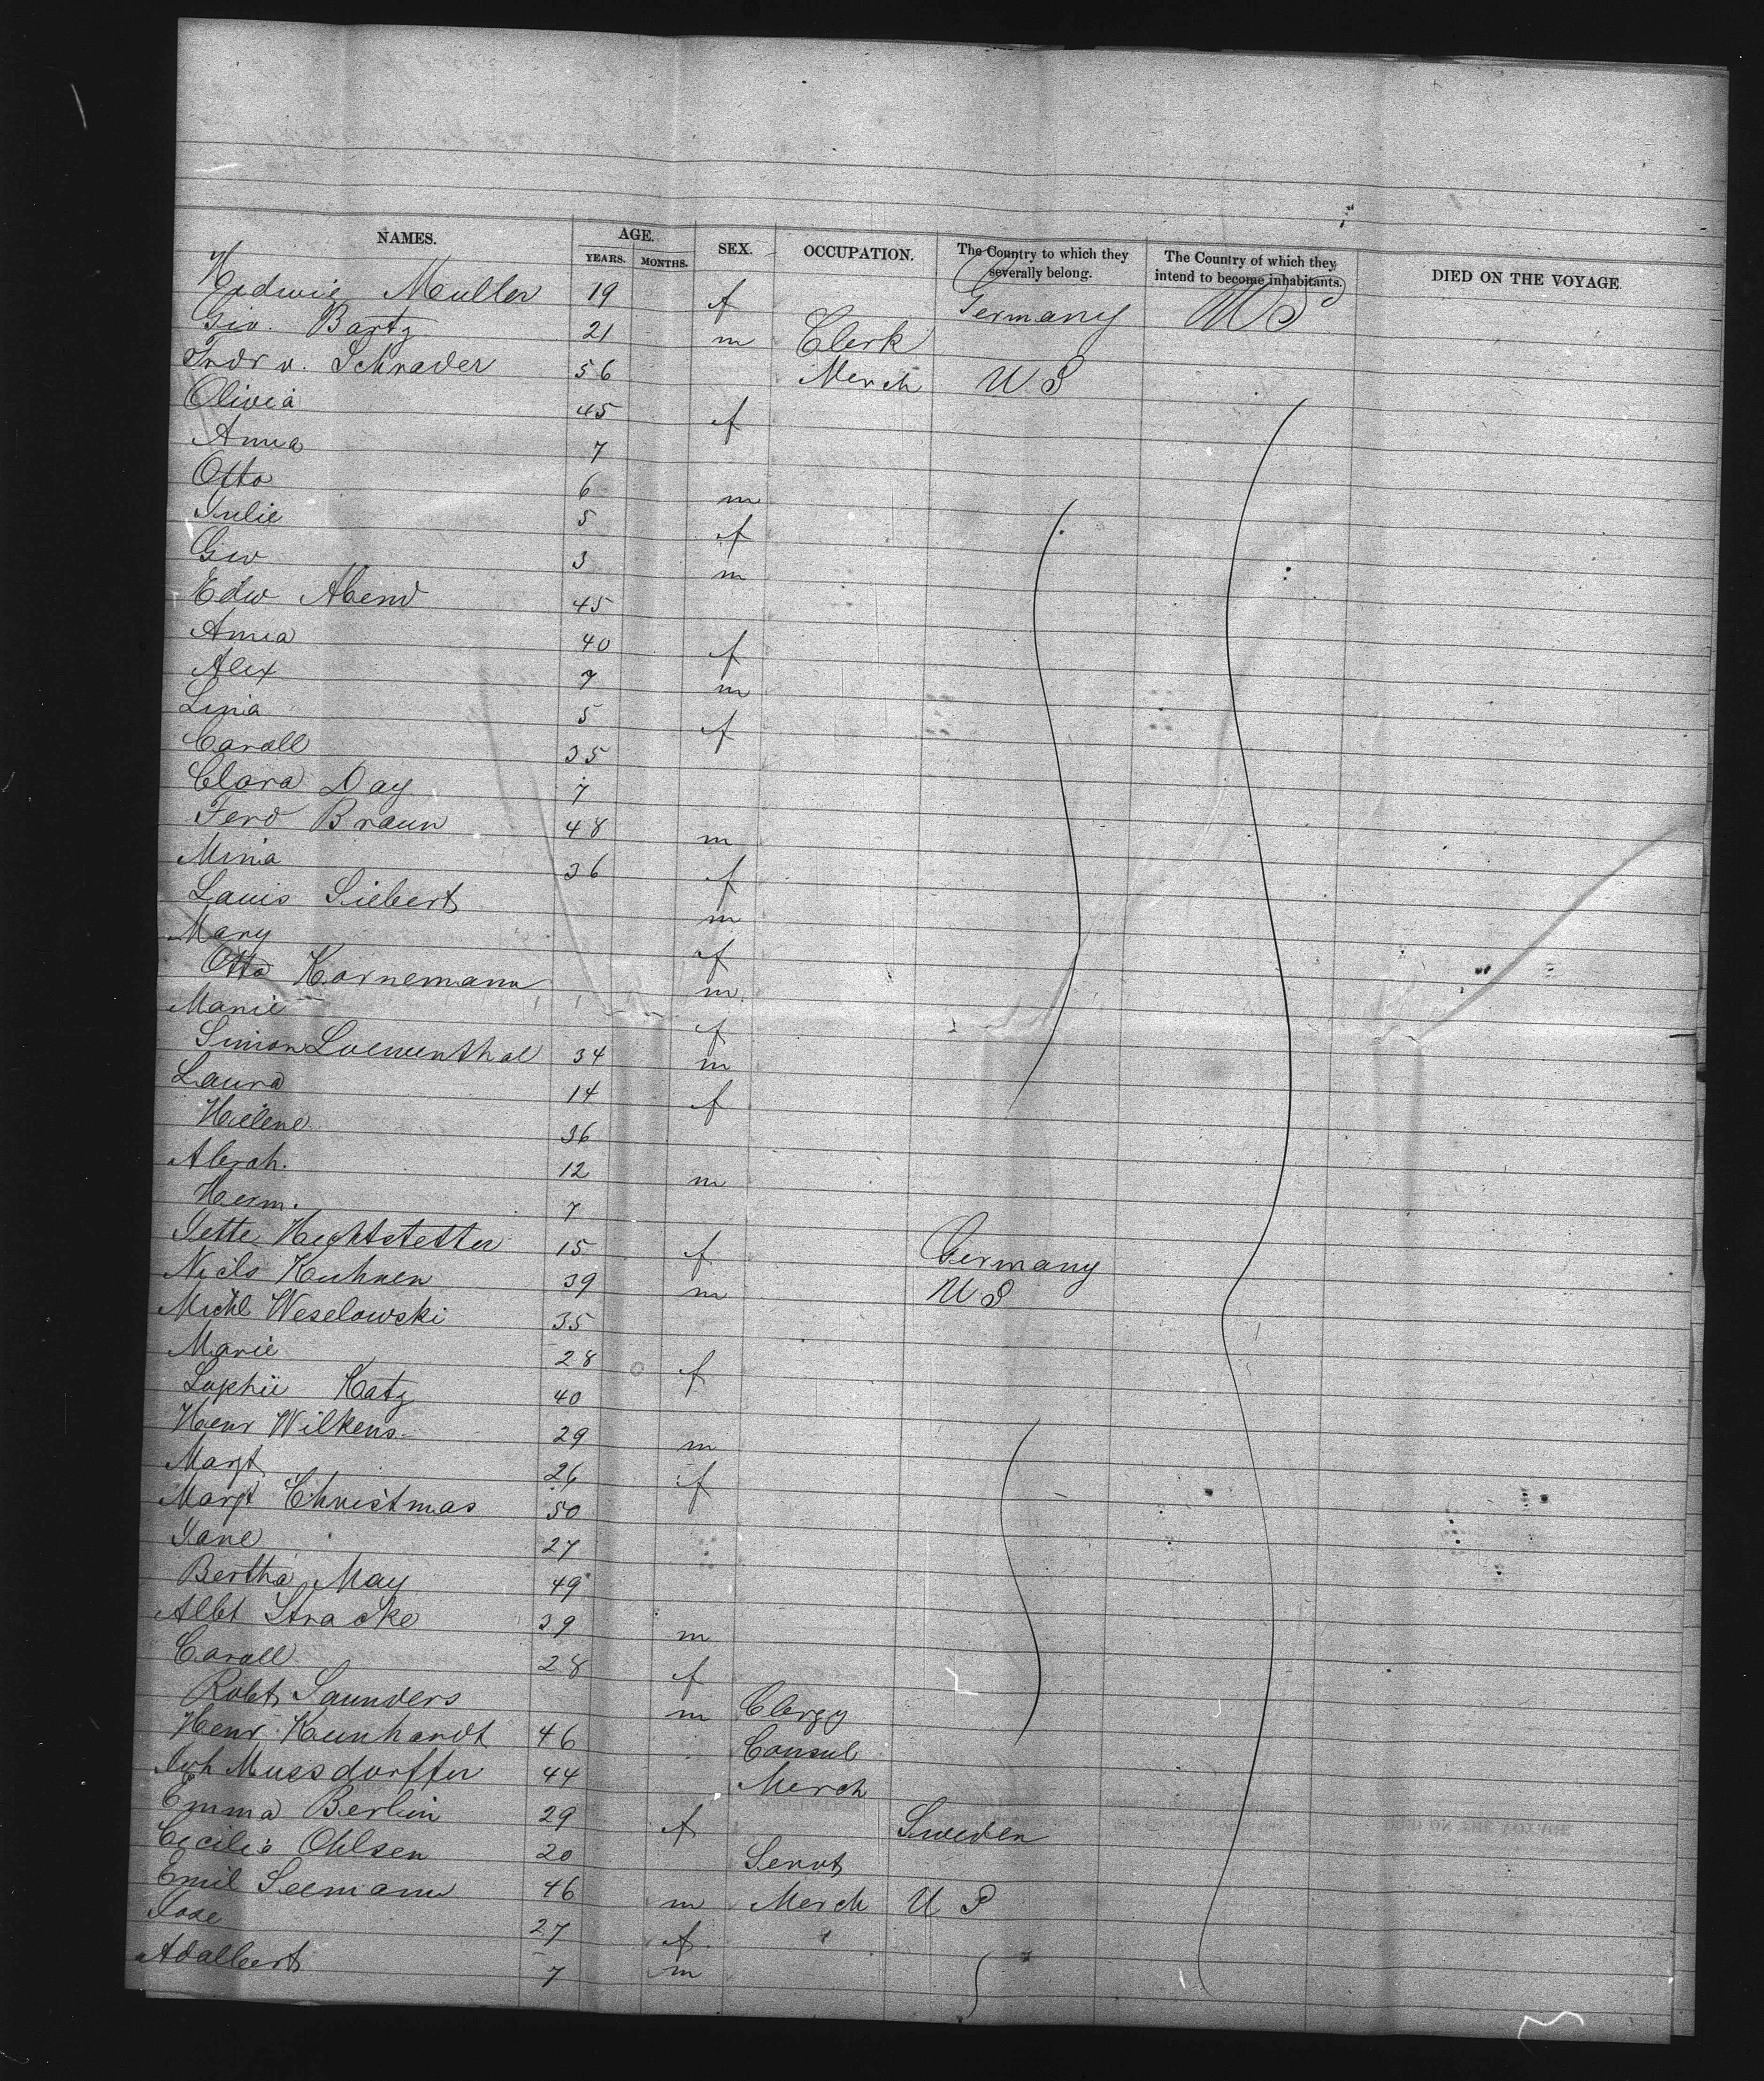 NAMES. AGE. SEX. OCCUPATION. The Country to which they severally belong. The Country of which they intend to become inhabitants. DIED ON THE VOYAGE
YEARS. MONTHS.
Hedwig Muller 19 f Germany US
Geo. Bartz 21 m Clerk
Fredr v. Schrader 56 Merch U S
Olivia 45 f
Anna 7
Otto 6 m
Julie 5 f
Geo 3 m
Edw Abend 45
Anna 40 f
Alex 7 m
Lina 5 f
Caroll 35
Clara Day 7
Ferd Braun 48 m
Mina 36 f
Louis Siebert m
Mary f
Otto Kornemann m
Marie f
Simon Loewenthal 34 m
Laura 14 f
Helene 36
Abrah. 12 m
Herm. 7
Jette Hechtstetter 15 f Germany
Niels Kuhnen 39 m U S
Michl Weselowski 35
Marie 28 f
Sophie Katz 40
Henr Wilkens 29 m
Margt 26 f
Margt Christmas 50
Jane 27
Bertha May 49
Albt Stracke 39 m
Caroll 28 f
Robt Saunders m Clergy
Henr Kunhardt 46 Consul
Mussdorffer 44 Merch
Emma Berlin 29 f Sweden
Cecilia Ohlsen 20 Servt
Emil Seemann 46 m Merch U S
27 f
Adalbert 7 m